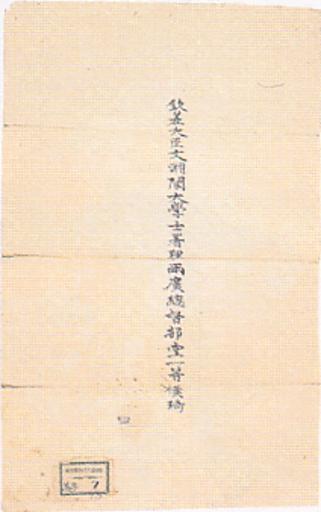 欽差大臣文淵閣大學士署理兩廣總督部堂一等侯琦
四
7